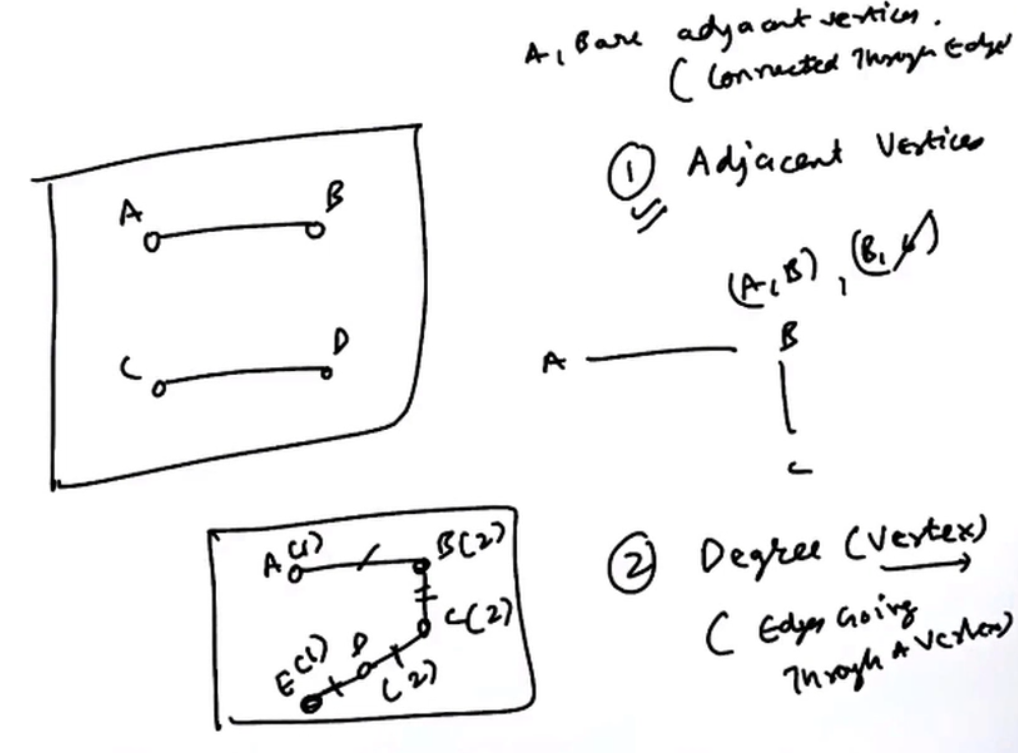 A, B are adjacent vertices.
( Connected Through Edge
① Adjacent Vertices
A B
(A, B) , (B, C)
A B
C D
C
A(1) B(2)
C(2)
E(1) D (2)
② Degree (Vertex)
( Edges Going
Through A Vertex)